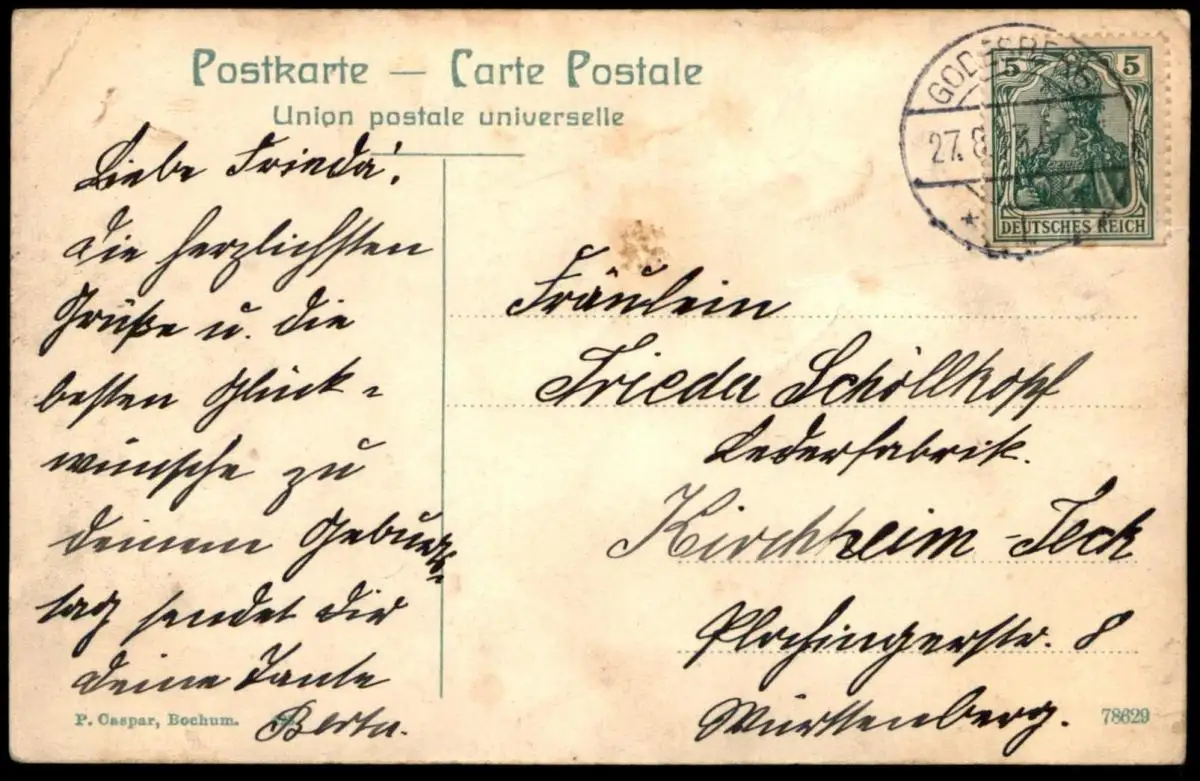 Postkarte — Carte Postale
Union postale universelle
Liebe Frieda!
Die herzlichsten
Grüße u. die
besten Glück-
wünsche zu
deinem Geburts-
tag sendet dir
deine Tante
Berta.
P. Caspar, Bochum.
GODESBERG
27. 8.
5 5
DEUTSCHES REICH
Fräulein
Frieda Schöllkopf
Lederfabrik.
Kirchheim-Teck
Plochingerstr. 8
Württemberg.
78629